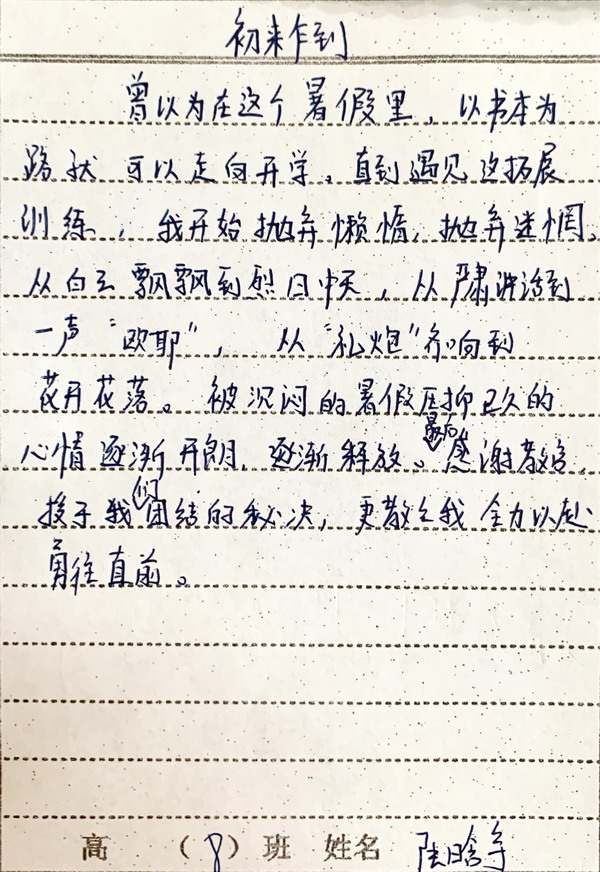 初来乍到
曾以为在这个暑假里，以书本为
路就 可以走向开学。直到遇见这拓展
训练，我开始抛弃懒惰，抛弃迷惘。
从白云飘飘到烈日中天，从严肃讲话到
一声“欧耶”，从“礼炮”齐响到
花开花落。被沉闷的暑假压抑已久的
心情逐渐开朗，逐渐释放。最后感谢教官，
授予我们团结的秘决，更教之我 全力以赴
勇往直前。
高 （8）班 姓名 陆晗